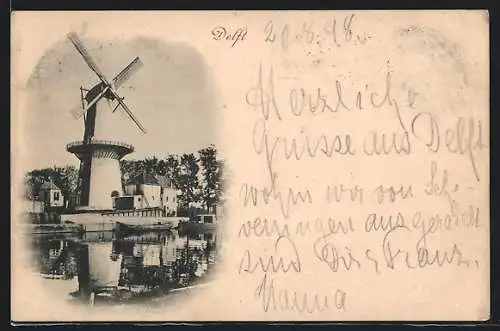 Delft
20.8.98.
Herzliche
Grüsse aus Delft
wohin wir von Sche
veningen ausgerückt
sind Dir, Franz.
Hanna